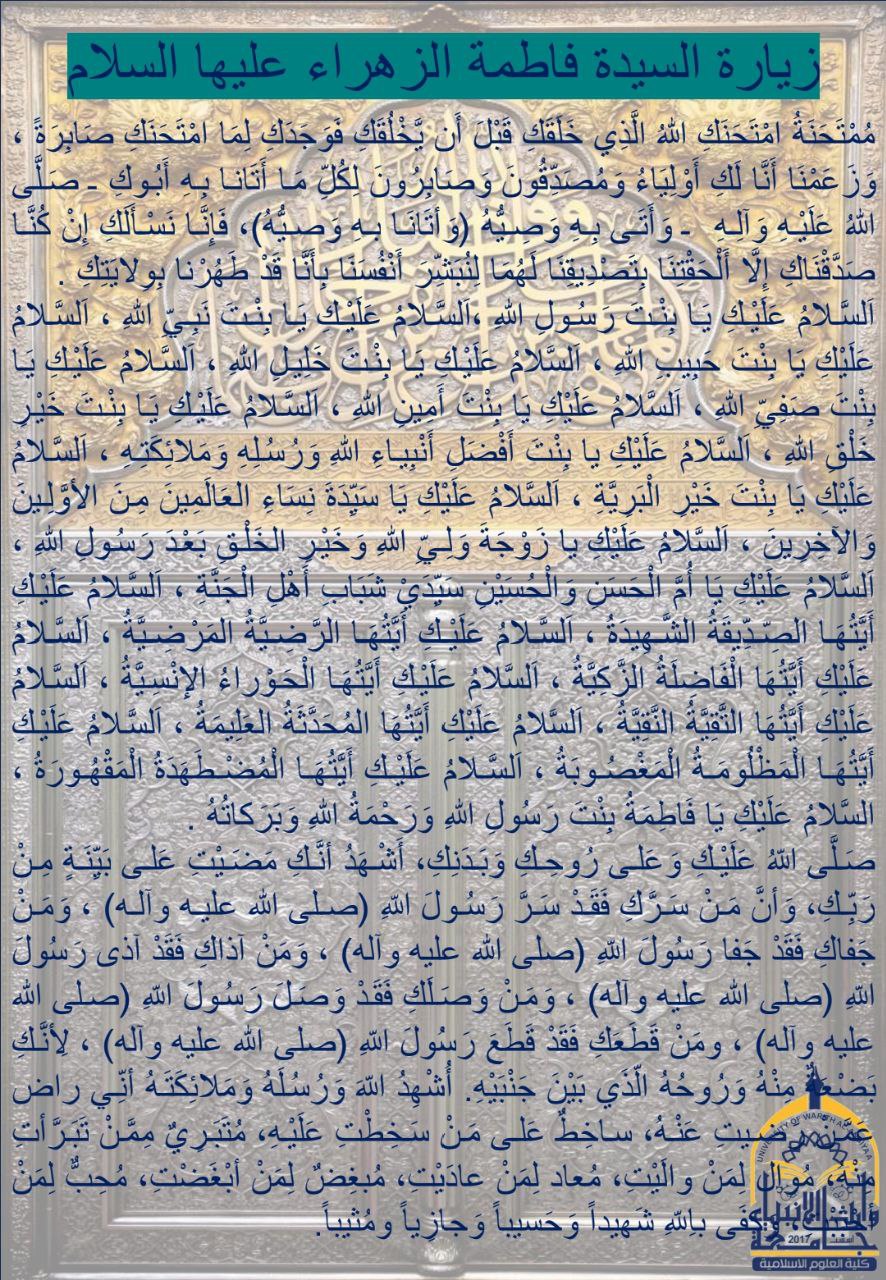 زيارة السيدة فاطمة الزهراء عليها السلام
مُمْتَحَنَةُ امْتَحَنَكِ اللهُ الَّذِي خَلَقَكِ قَبْلَ أَن يَّخْلُقَكِ فَوَجَدَكِ لِمَا امْتَحَنَكِ صَابِرَةً ،
وَزَعَمْنَا أَنَّا لَكِ أَوْلِيَاءُ وَمُصَدِّقُونَ وَصَابِرُونَ لِكُلِّ مَا أَتَانا بِهِ أَبُوكِ ـ صَلَّى
اللهُ عَلَيْهِ وَآلِهِ ـ وَأَتَى بِهِ وَصِيُّهُ (وَأتَانَا بهِ وَصيُّهُ)، فَإِنَّا نَسْأَلَكِ إِنْ كُنَّا
صَدَّقْنَاكِ إِلَّا أَلْحَقْتِنَا بِتَصْدِيقِنَا لَهُمَا لِنُبَشِّرَ أَنْفُسَنَا بِأَنَّا قَدْ طَهُرْنا بِوِلايَتِكِ .
اَلسَّلامُ عَلَيْكِ يَا بِنْتَ رَسُولِ اللهِ ،اَلسَّلامُ عَلَيْكِ يَا بِنْتَ نَبِيِّ اللهِ ، اَلسَّلامُ
عَلَيْكِ يَا بِنْتَ حَبِيبِ اللهِ ، اَلسَّلامُ عَلَيْكِ يَا بِنْتَ خَلِيلِ اللهِ ، اَلسَّلامُ عَلَيْكِ يَا
بِنْتَ صَفِيِّ اللهِ ، اَلسَّلامُ عَلَيْكِ يَا بِنْتَ أَمِينِ اللهِ ، اَلسَّلامُ عَلَيْكِ يَا بِنْتَ خَيْرِ
خَلْقِ اللهِ ، اَلسَّلامُ عَلَيْكِ يا بِنْتَ أَفْضَلِ أَنْبِيـاءِ اللهِ وَرُسُلِهِ وَمَلائِكَتِهِ ، اَلسَّلامُ
عَلَيْكِ يَا بِنْتَ خَيْرِ الْبَرِيَّةِ ، اَلسَّلامُ عَلَيْكِ يَا سَيِّدَةَ نِسَاءِ العَالَمِينَ مِنَ الأوَّلِينَ
وَالآخِرِينَ ، اَلسَّلامُ عَلَيْكِ يا زَوْجَةَ وَلِيِّ اللهِ وَخَيْرِ الخَلْقِ بَعْدَ رَسُولِ اللهِ ،
اَلسَّلامُ عَلَيْكِ يَا أُمَّ الْحَسَنِ وَالْحُسَيْنِ سَيِّدَيْ شَبَابِ أَهْلِ الْجَنَّةِ ، اَلسَّلامُ عَلَيْكِ
أَيَّتُهَا الصِّدِّيقَةُ الشَّهِيدَةُ ، اَلسَّلامُ عَلَيْكِ أَيَّتُهَا الرَّضِيَّةُ المَرْضِيَّةُ ، اَلسَّلامُ
عَلَيْكِ أَيَّتُهَا الْفَاضِلَةُ الزَّكِيَّةُ ، اَلسَّلامُ عَلَيْكِ أَيَّتُهَا الْحَوْرَاءُ الإنْسِيَّةُ ، اَلسَّلامُ
عَلَيْكِ أَيَّتُهَا التَّقِيَّةُ النَّقِيَّةُ ، اَلسَّلامُ عَلَيْكِ أَيَّتُهَا المُحَدَّثَةُ العَلِيمَةُ ، اَلسَّلامُ عَلَيْكِ
أَيَّتُهَا الْمَظْلُومَةُ الْمَغْصُوبَةُ ، اَلسَّلامُ عَلَيْكِ أَيَّتُهَا الْمُضْطَهَدَةُ الْمَقْهُورَةُ ،
السَّلامُ عَلَيْكِ يَا فَاطِمَةُ بِنْتَ رَسُولِ اللهِ وَرَحْمَةُ اللهِ وَبَرَكاتُهُ .
صَلَّى اللّهُ عَلَيْكِ وَعَلى رُوحِكِ وَبَدَنِكِ، أَشْهَدُ أنَّكِ مَضَيْتِ عَلى بَيِّنَةٍ مِنْ
رَبِّكِ، وَأنَّ مَنْ سَرَّكِ فَقَدْ سَرَّ رَسُولَ اللّهِ (صلى الله عليه وآله) ، وَمَنْ
جَفاكِ فَقَدْ جَفا رَسُولَ اللّهِ (صلى الله عليه وآله) ، وَمَنْ آذاكِ فَقَدْ آذى رَسُولَ
اللّهِ (صلى الله عليه وآله) ، وَمَنْ وَصَلَكِ فَقَدْ وَصَلَ رَسُولَ اللّهِ (صلى الله
عليه وآله) ، ومَنْ قَطَعَكِ فَقَدْ قَطَعَ رَسُولَ اللّهِ (صلى الله عليه وآله) ، لِأنَّكِ
بَضْعَةٌ مِنْهُ وَرُوحُهُ الَّذي بَيْنَ جَنْبَيْهِ. أُشْهِدُ اللّهَ وَرُسُلَهُ وَمَلائِكَتَهُ أنّي راضٍ
عَمَّنْ رَضيتِ عَنْهُ، ساخطٌ عَلى مَنْ سَخطْتِ عَلَيْهِ، مُتَبَرِيٌ مِمَّنْ تَبَرَّأتِ
مِنْهُ، مُوالٍ لِمَنْ والَيْتِ، مُعاد لِمَنْ عادَيْتِ، مُبغِضٌ لِمَنْ أبْغَضْتِ، مُحِبٌّ لِمَنْ
أحْبَبْتِ، وَكَفَى بِاللّهِ شَهيداً وَحَسيباً وَجازِياً ومُثيباً.
جامعة
وارث الأنبياء
2017
كلية العلوم الاسلامية